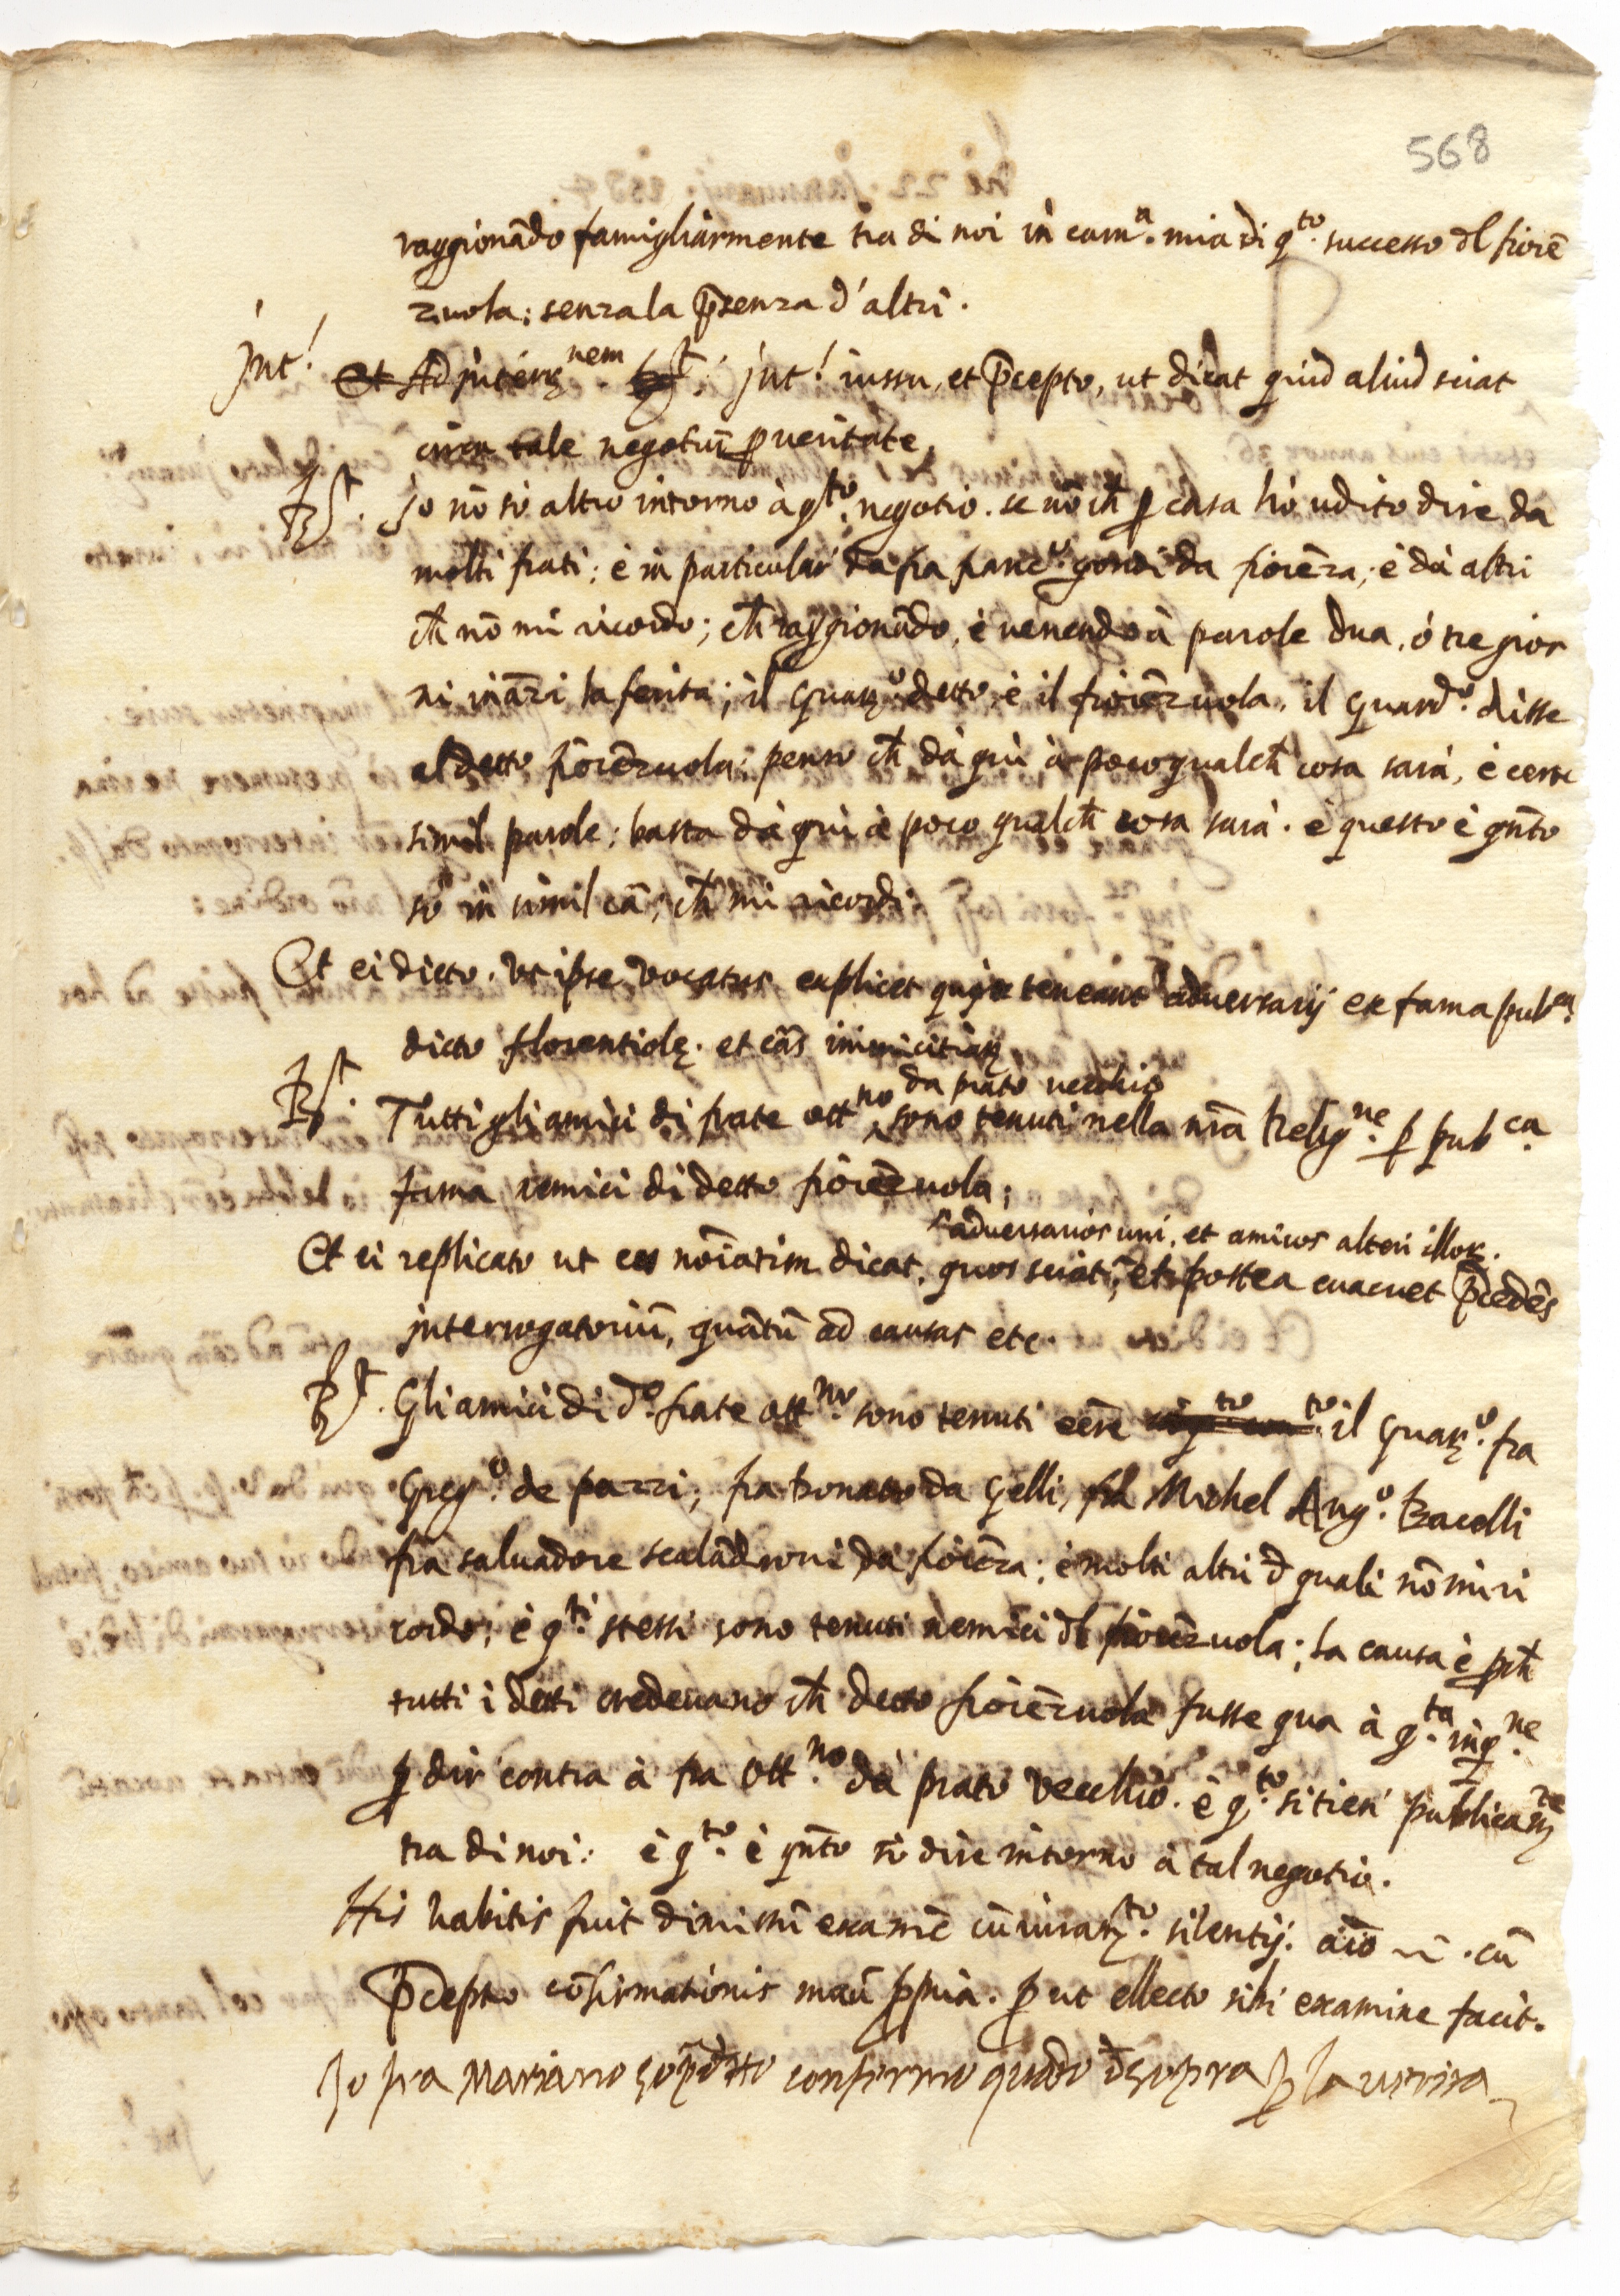 568
raggionādo famigliarmente tra di noi in cam.ª mia di q.to successo dl fiorē
zuola; senza la p̄senza d'altri.
Int! Et Ad
Int! iussu, et p̄cepto, ut dicat quid aliud sciat
circa tale negotiū p veritate.
R.t Io nō so altro intorno à q.to negotio. se nō ch̄ p casa hò udito dire da
molti frati; è in particular da fra franc.º gondi da fiorēza; è dà altri
ch̄ nō mi ricordo; ch̄ raggionādo, è venendo à parole dua, ò tre gior
ni ināzi la ferita; il Guar.º detto, è il fiorēzuola. il Guard.º disse
al detto fiorēzuola; penso ch̄ dà quì à poco qualch̄ cosa sarà, è certe
simil parole; basta dà quì à poco qualch̄ cosa sarà. è questo è qn̄to
so in simil cā, ch̄ mi ricordi.
Et ei dicto. Ut ipse vocatus explicet qui teneant.r adversarij ex fama pub.ca
dicto florentiolę. et cās inimicitiarȝ
da prato vecchio
R.t Tutti gli amici di frate ott.no sono tenuti nella nr̄a Relig.ne p pub.ca
fama nemici di detto fiorēzuola;
adversarios uni, et amicos alteri illoȝ.
Et ei replicato ut eos noīatim dicat, quos sciat, et postea evacuet p̄cedēs
interrogatoriū, quātū ad causas etc.
R.t Gli amici di d.º frate ott.no sono tenuti eēre il Guar.º fra
Greg.º de pazzi; fra Donato da Gelli, fra Michel Ang.º Bacelli
fra salvadore scalādroni da fiorēza; è molti altri d̄ quali nō mi ri
cordo; è q.ti stessi sono tenuti nemici dl fiorēzuola; la causa è pch̄
tutti i detti credevano ch̄ detto fiorēzuola fusse qua à q.ta inq.ne
p dir contra à fra Ott.no dà prato vecchio. è q.to si tien' publicam.te
tra di noi: è q.to è qn̄to so dire intorno à tal negotio.
His habitis fuit dimissū examē cū iuram.to silentij. cū
p̄cepto cōfirmationis manū p̄pria. put ellecto sibi examine facit.
Io fra Mariano sop̄detto confermo quādo d̄ sopra p la verita